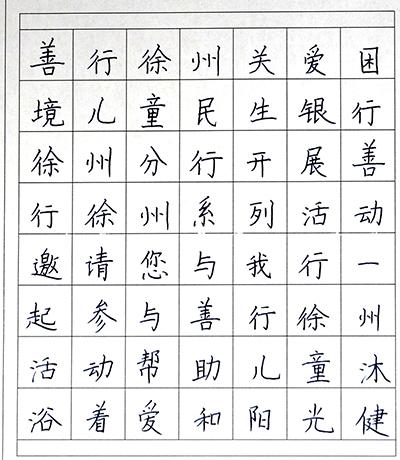 善行徐州关爱困
境儿童民生银行
徐州分行开展善
行徐州系列活动
邀请您与我行一
起参与善行徐州
活动帮助儿童沐
浴着爱和阳光健